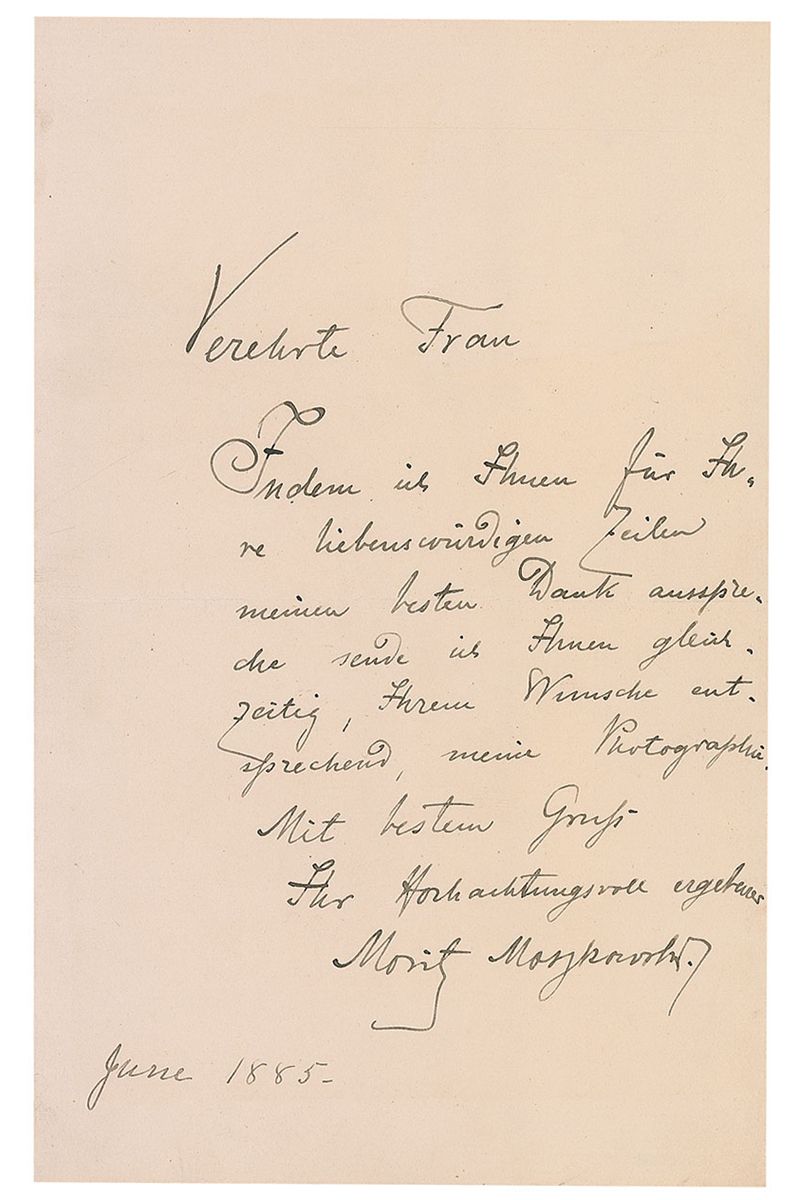 Verehrte Frau
Indem ich Ihnen für Ih-
re liebenswürdigen Zeilen
meinen besten Dank ausspre-
che sende ich Ihnen gleich-
zeitig, Ihrem Wunsche ent-
sprechend, meine Photographie.
Mit bestem Gruß
Ihr Hochachtungsvoll ergebener
Moritz Moszkowski.
June 1885-